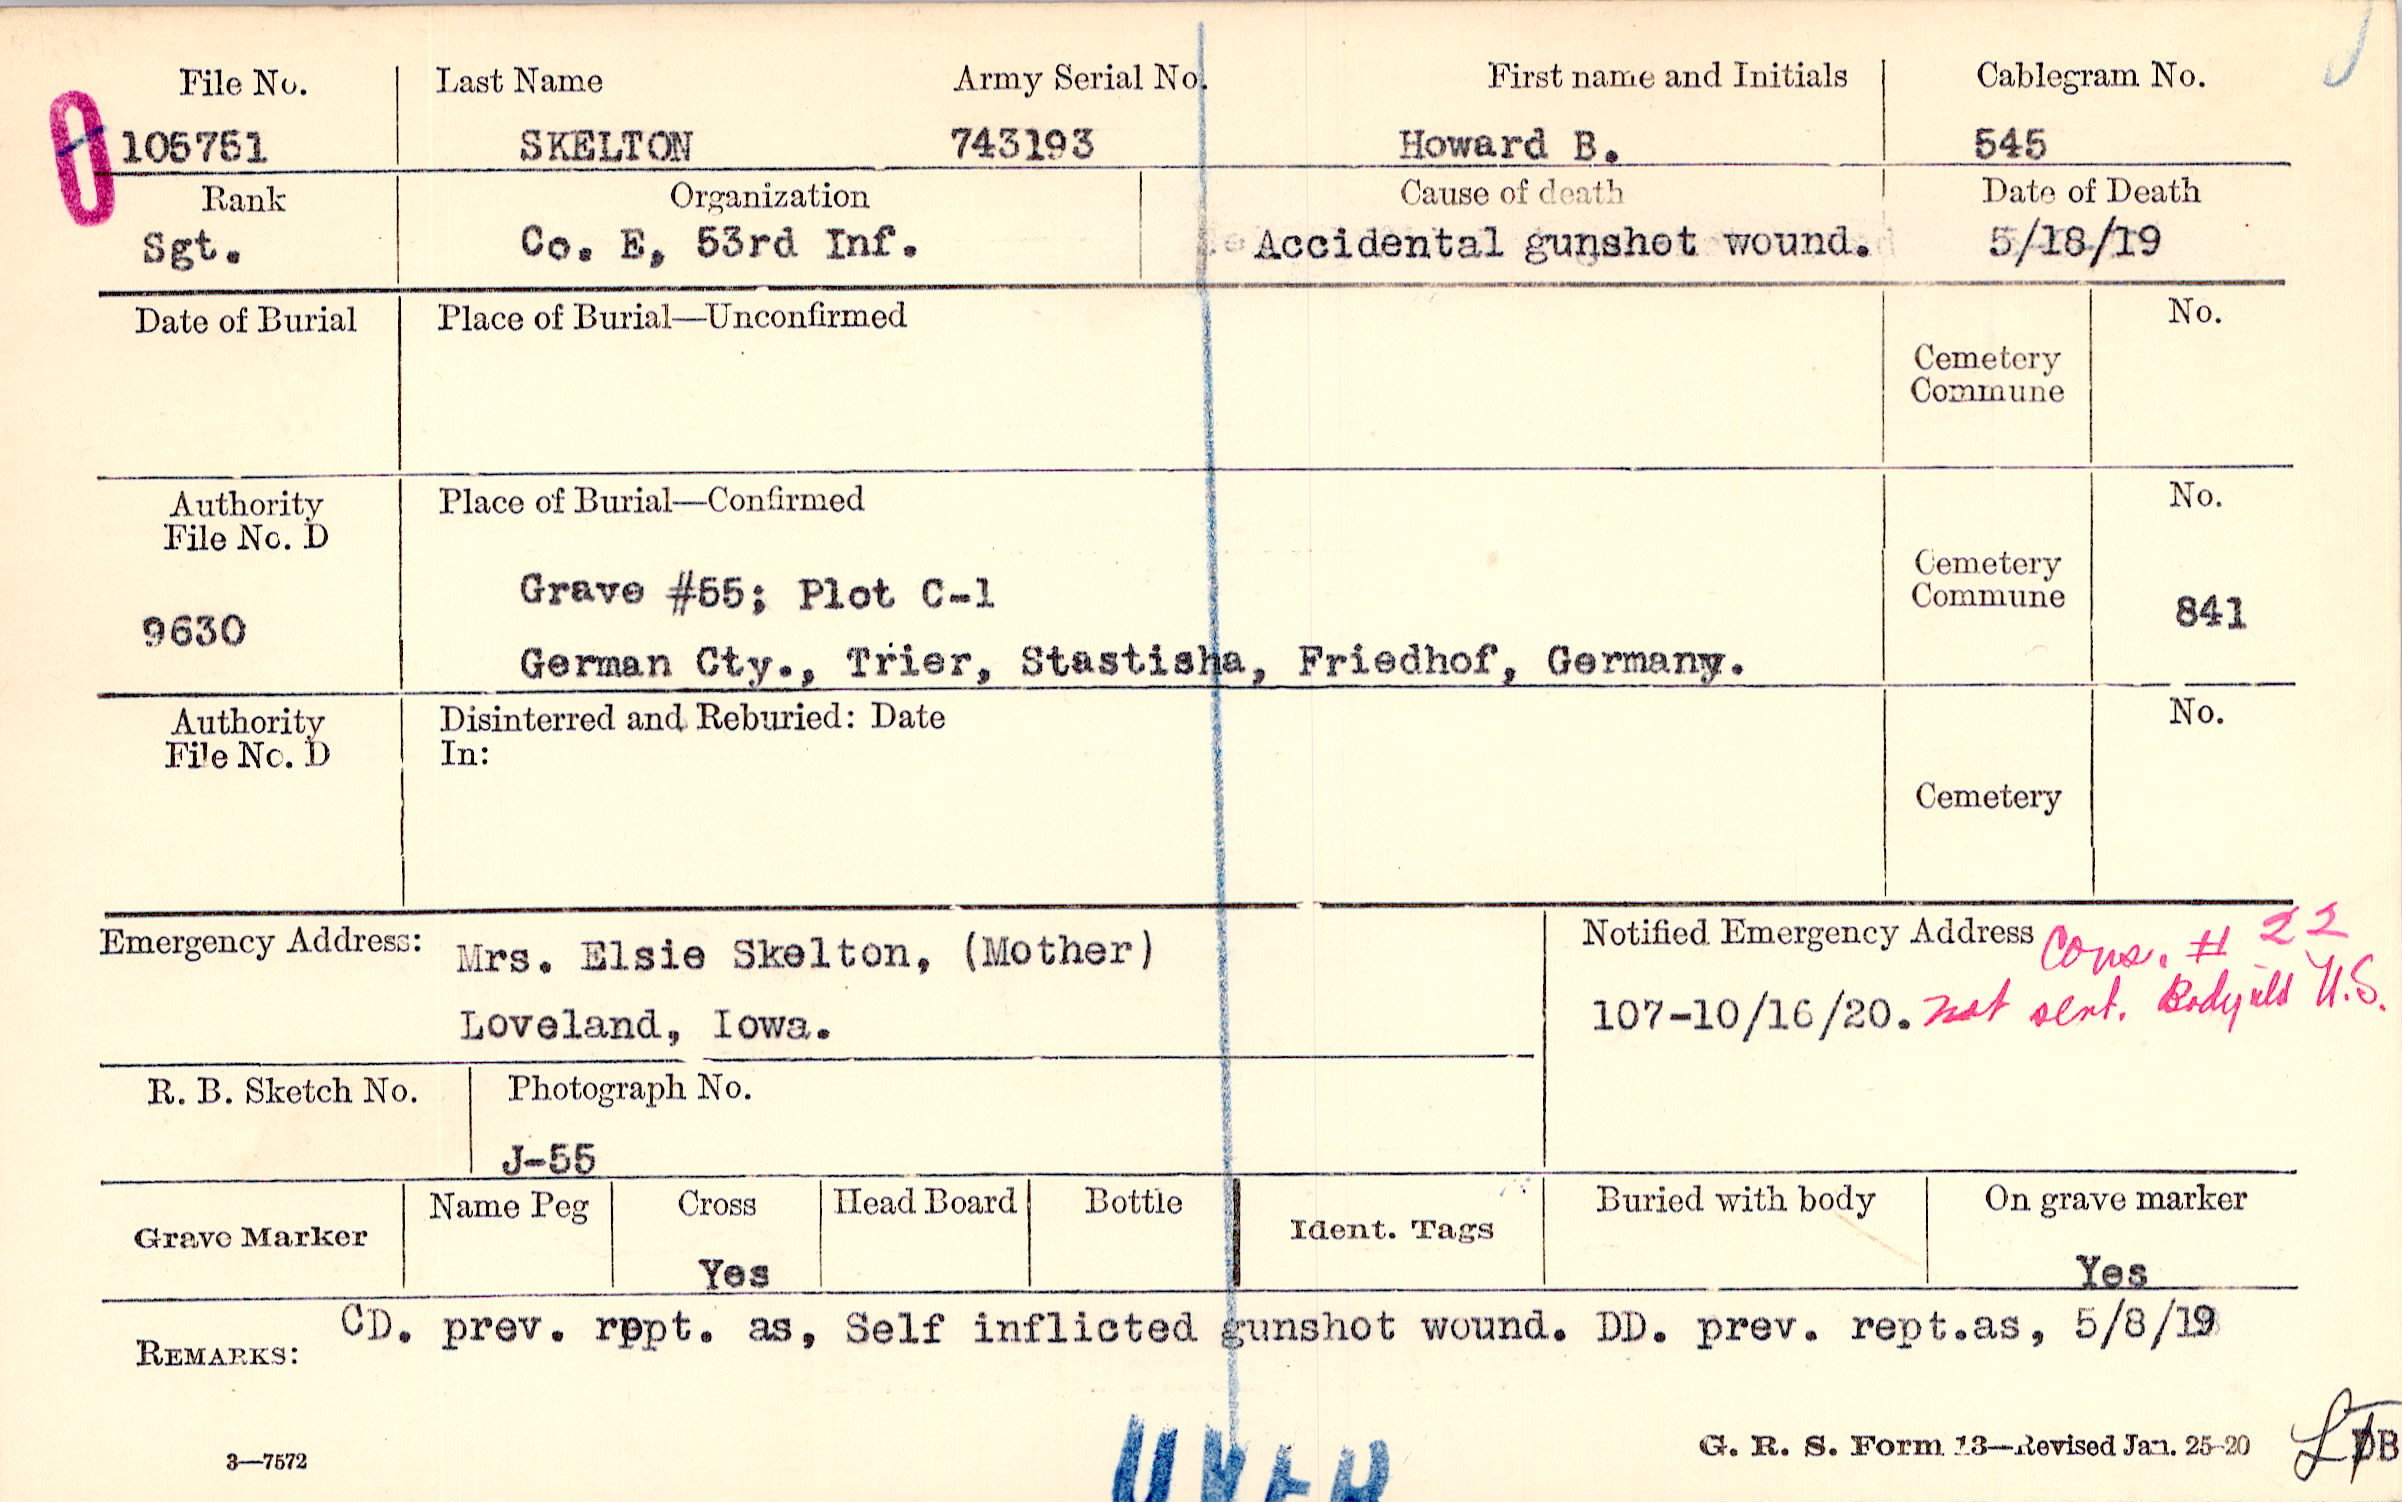 File No. Last Name Army Serial No. First name and Initials Cablegram No.
105751 SKELTON 743193 Howard B. 545
Rank Organization Cause of death Date of Death
Sgt. Co. E, 53rd Inf. Accidental gunshot wound. 5/18/19
Date of Burial Place of Burial—Unconfirmed No.
Cemetery
Commune
Authority Place of Burial—Confirmed No.
File No. D
Grave #55; Plot C-1 Cemetery
Commune
9630 841
German Cty., Trier, Stastisha, Friedhof, Germany.
Authority Disinterred and Reburied: Date No.
File No. D In:
Cemetery
Emergency Address: Mrs. Elsie Skelton, (Mother) Notified Emergency Address Cons. # 22
Loveland, Iowa. 107-10/16/20. not sent. Body U.S.
R. B. Sketch No. Photograph No.
J-55
Grave Marker Name Peg Cross Head Board Bottle Ident. Tags Buried with body On grave marker
Yes Yes
REMARKS: CD. prev. rppt. as, Self inflicted gunshot wound. DD. prev. rept.as, 5/8/19
3—7572 G. R. S. Form 13—Revised Jan. 25-20